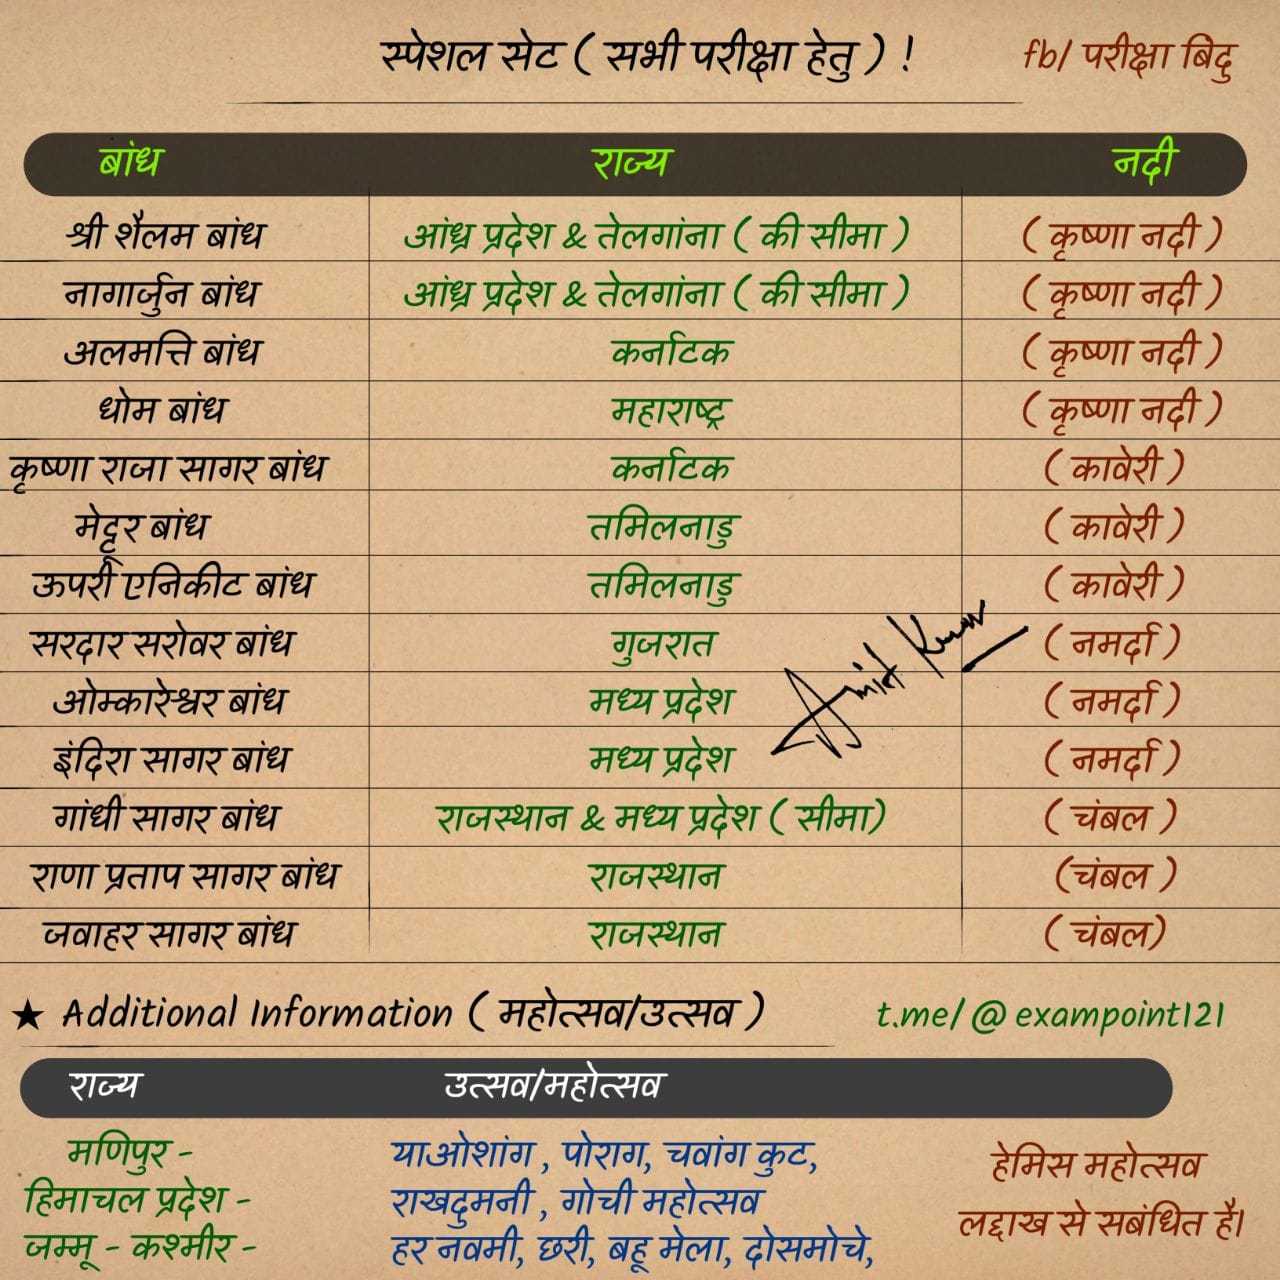 स्पेशल सेट ( सभी परीक्षा हेतु ) ! fb/ परीक्षा बिदु
बांध राज्य नदी
श्री शैलम बांध आंध्र प्रदेश & तेलगांना ( की सीमा ) ( कृष्णा नदी )
नागार्जुन बांध आंध्र प्रदेश & तेलगांना ( की सीमा ) ( कृष्णा नदी )
अलमत्ति बांध कर्नाटक ( कृष्णा नदी )
धोम बांध महाराष्ट्र ( कृष्णा नदी )
कृष्णा राजा सागर बांध कर्नाटक ( कावेरी )
मेट्टूर बांध तमिलनाडु ( कावेरी )
ऊपरी एनिकीट बांध तमिलनाडु ( कावेरी )
सरदार सरोवर बांध गुजरात ( नमर्दा )
ओम्कारेश्वर बांध मध्य प्रदेश ( नमर्दा )
इंदिरा सागर बांध मध्य प्रदेश ( नमर्दा )
गांधी सागर बांध राजस्थान & मध्य प्रदेश ( सीमा) ( चंबल )
राणा प्रताप सागर बांध राजस्थान (चंबल )
जवाहर सागर बांध राजस्थान ( चंबल)
Amit Kumar
★ Additional Information ( महोत्सव/उत्सव ) t.me/ @ exampoint121
राज्य उत्सव/महोत्सव
मणिपुर - याओशांग , पोराग, चवांग कुट,
हिमाचल प्रदेश - राखदुमनी , गोची महोत्सव
जम्मू - कश्मीर - हर नवमी, छरी, बहू मेला, दोसमोचे,
हेमिस महोत्सव
लद्दाख से सबंधित है।